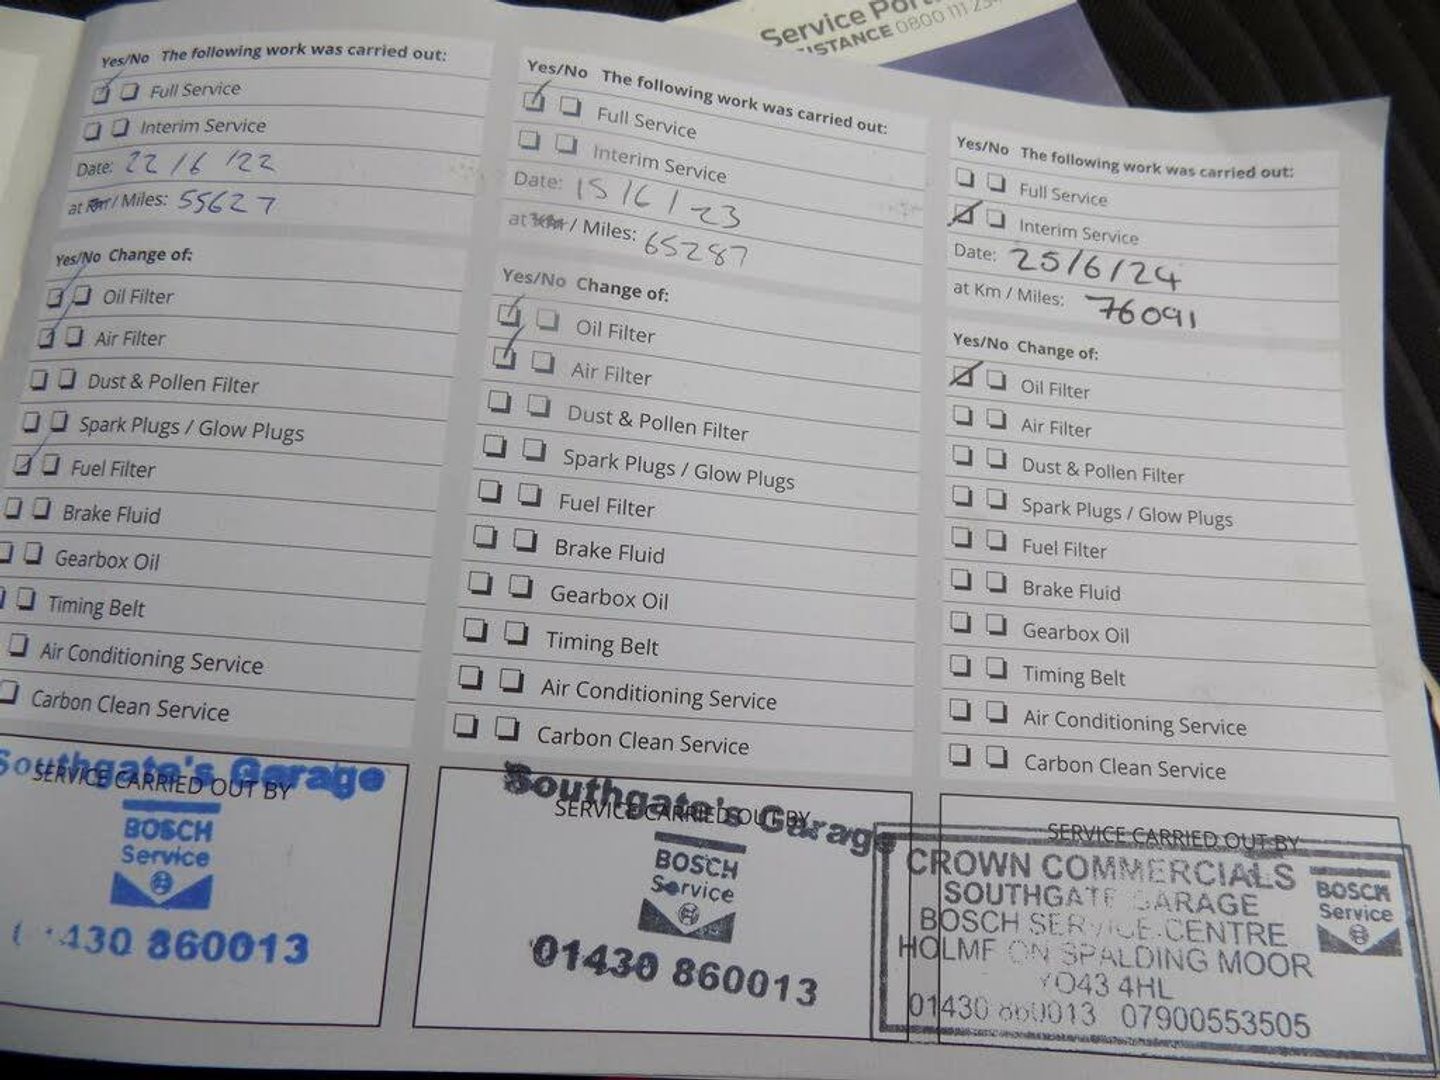 Service Por
ISTANCE 0800 111 23
Yes/No The following work was carried out:
Full Service
Interim Service
Date: 22/6/22
at Km / Miles: 55627
Yes/No Change of:
Oil Filter
Air Filter
Dust & Pollen Filter
Spark Plugs / Glow Plugs
Fuel Filter
Brake Fluid
Gearbox Oil
Timing Belt
Air Conditioning Service
Carbon Clean Service
SERVICE CARRIED OUT BY
Southgate's Garage
BOSCH
Service
430 860013
Yes/No The following work was carried out:
Full Service
Interim Service
Date: 15/6/23
at Km / Miles: 65287
Yes/No Change of:
Oil Filter
Air Filter
Dust & Pollen Filter
Spark Plugs / Glow Plugs
Fuel Filter
Brake Fluid
Gearbox Oil
Timing Belt
Air Conditioning Service
Carbon Clean Service
SERVICE CARRIED OUT BY
Southgate's Garage
BOSCH
Service
01430 860013
Yes/No The following work was carried out:
Full Service
Interim Service
Date: 25/6/24
at Km / Miles: 76091
Yes/No Change of:
Oil Filter
Air Filter
Dust & Pollen Filter
Spark Plugs / Glow Plugs
Fuel Filter
Brake Fluid
Gearbox Oil
Timing Belt
Air Conditioning Service
Carbon Clean Service
SERVICE CARRIED OUT BY
CROWN COMMERCIALS
SOUTHGATE GARAGE
BOSCH SERVICE CENTRE
HOLME ON SPALDING MOOR
YO43 4HL
01430 860013 07900553505
BOSCH
Service